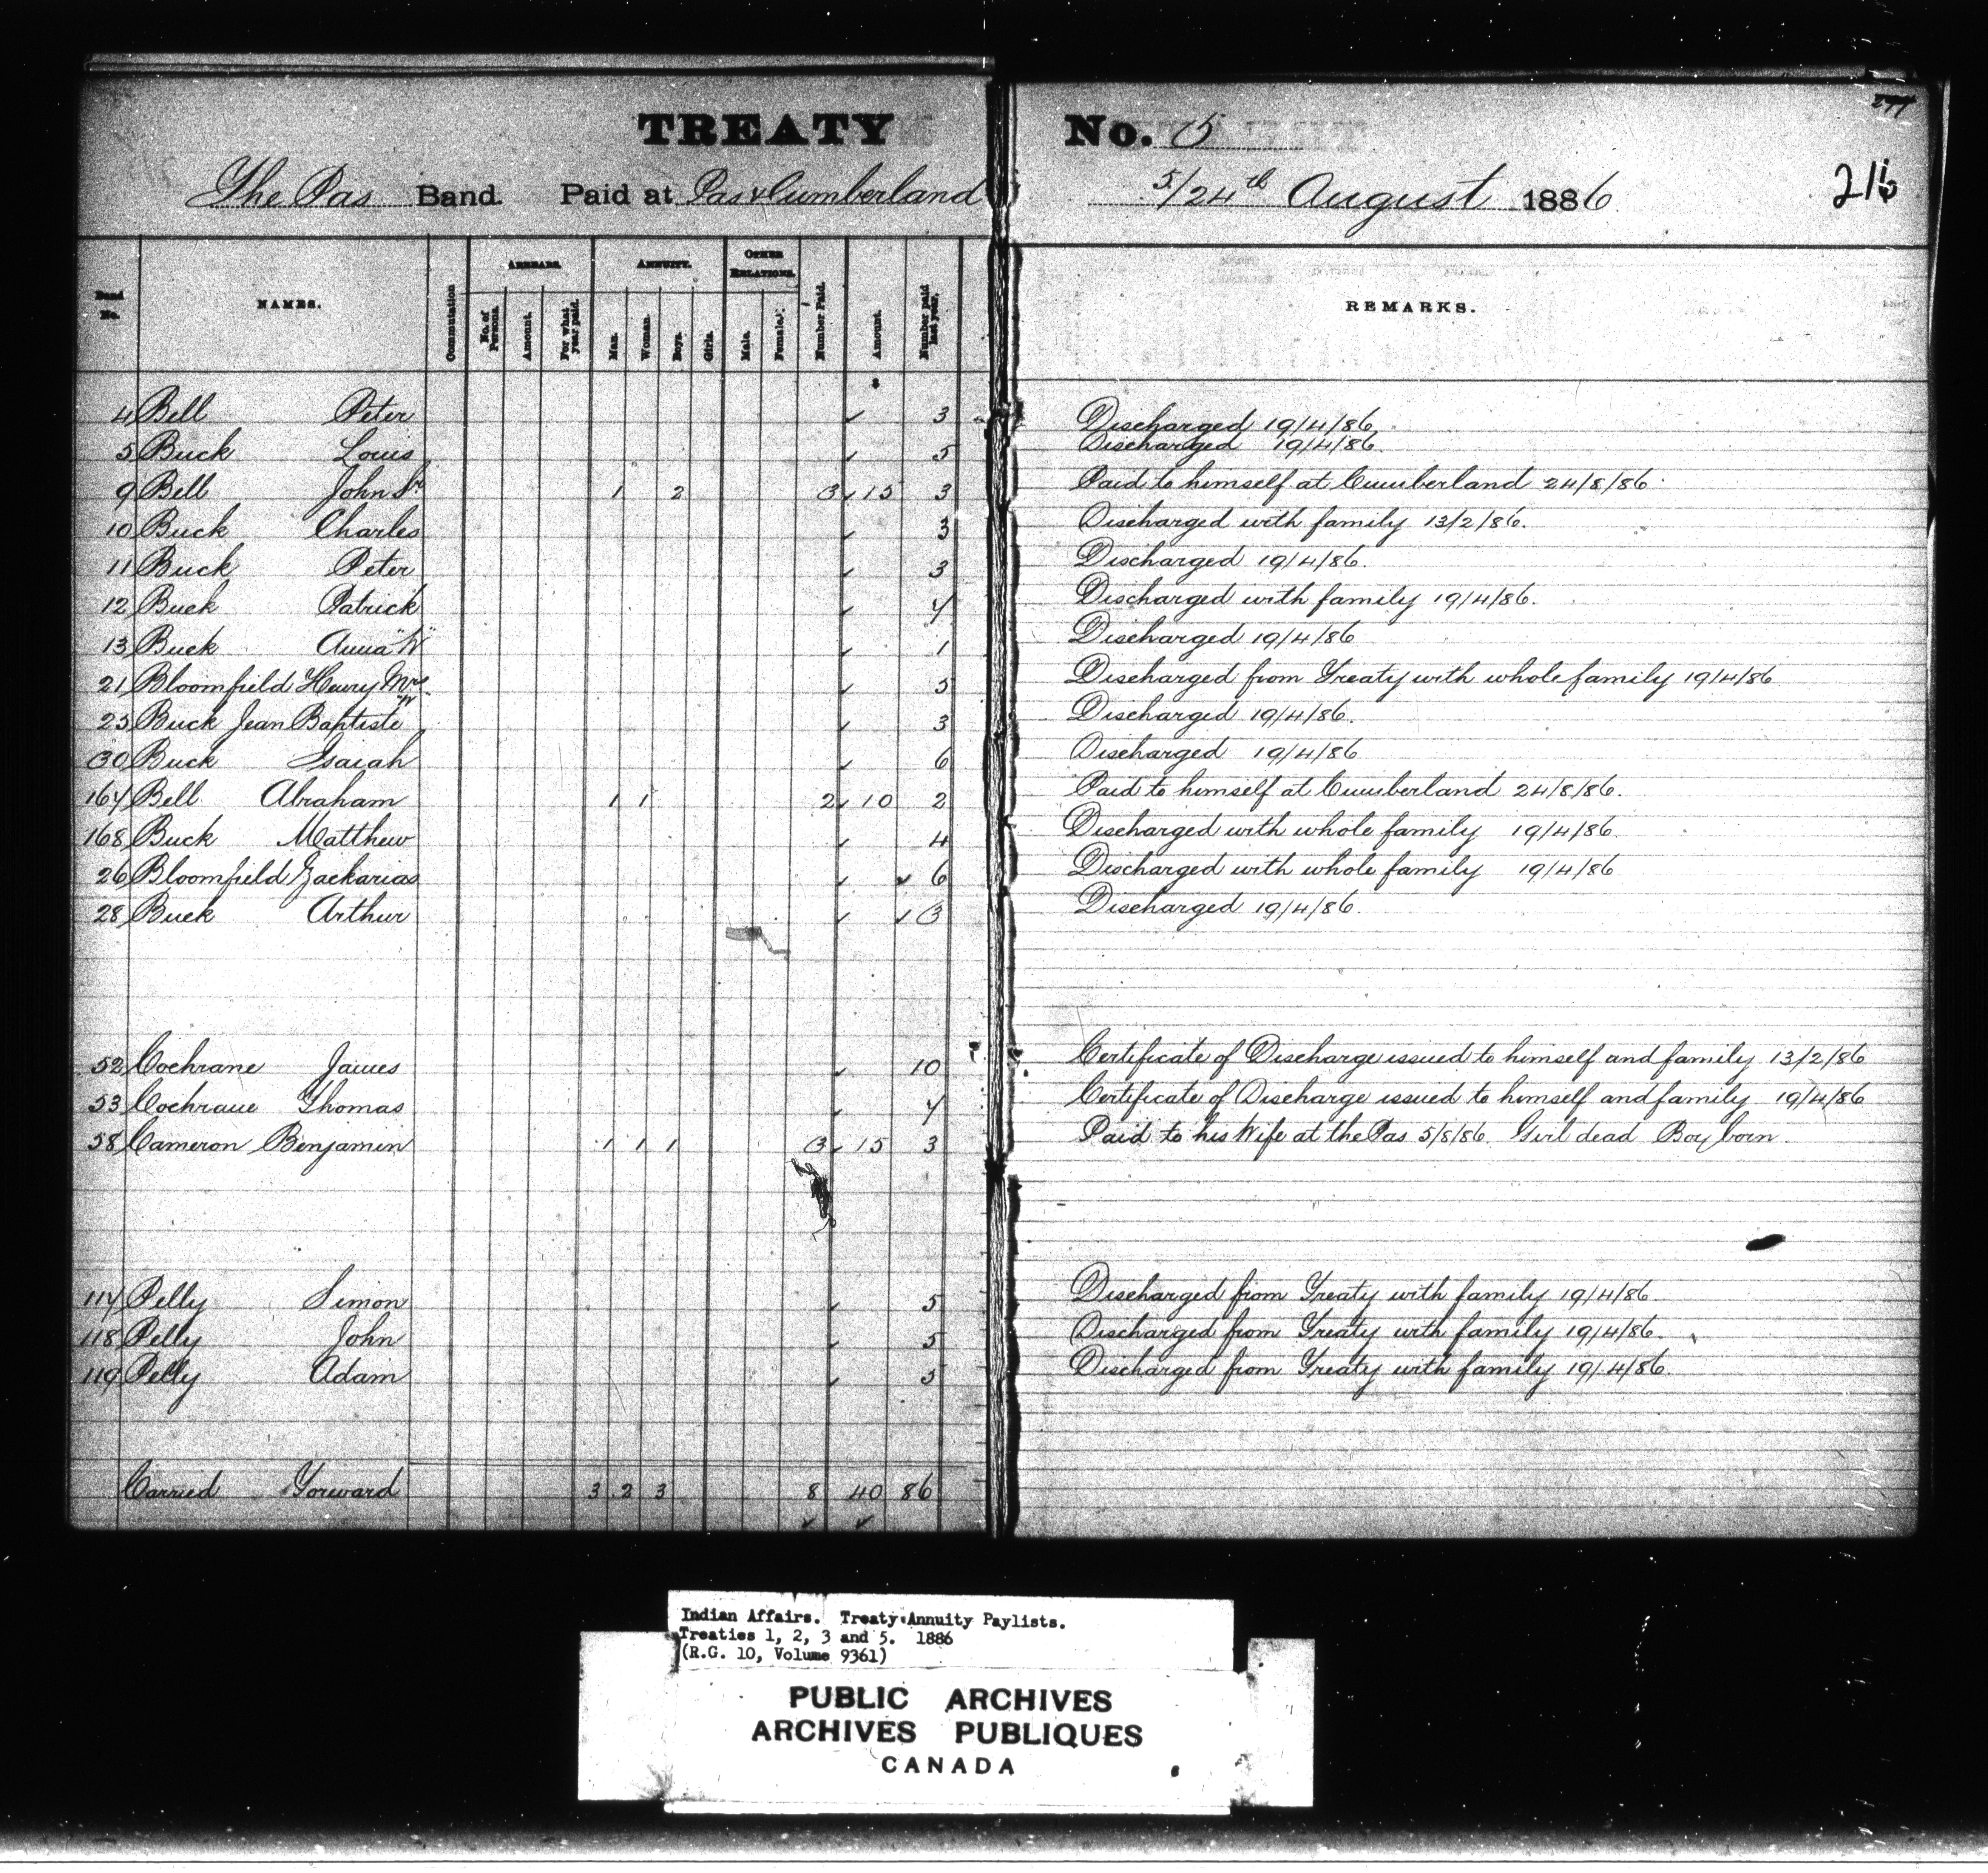 TREATY No. 5
277
216
The Pas Band. Paid at Pas & Cumberland 5/24th August 1886
Band No. NAMES. Commutation ARREARS. No. of Persons. Amount. For what year paid. ANNUITY. Man. Woman. Boys. Girls. OTHER RELATIONS. Male. Female. Number Paid. Amount. Number paid last year. REMARKS.
$
4 Bell Peter ✓ 3 Discharged 19/4/86
5 Buck Louis ✓ 5 Discharged 19/4/86
9 Bell John Sr 1 2 3 ✓ 15 3 Paid to himself at Cumberland 24/8/86
10 Buck Charles ✓ 3 Discharged with family 13/2/86.
11 Buck Peter ✓ 3 Discharged 19/4/86.
12 Buck Patrick ✓ 4 Discharged with family 19/4/86.
13 Buck Anna "W" ✓ 1 Discharged 19/4/86
21 Bloomfield Henry Mrs "W" ✓ 5 Discharged from Treaty with whole family 19/4/86
25 Buck Jean Baptiste ✓ 3 Discharged 19/4/86.
30 Buck Isaiah ✓ 6 Discharged 19/4/86
164 Bell Abraham 1 1 2 ✓ 10 2 Paid to himself at Cumberland 24/8/86.
168 Buck Matthew ✓ 4 Discharged with whole family 19/4/86.
26 Bloomfield Zackarias ✓ ✓ 6 Discharged with whole family 19/4/86
28 Buck Arthur ✓ ✓ 3 Discharged 19/4/86.
52 Cochrane James ✓ 10 Certificate of Discharge issued to himself and family 13/2/86
53 Cochrane Thomas ✓ 4 Certificate of Discharge issued to himself and family 19/4/86
58 Cameron Benjamin 1 1 1 3 ✓ 15 3 Paid to his Wife at the Pas 5/8/86. Girl dead Boy born.
114 Pelly Simon ✓ 5 Discharged from Treaty with family 19/4/86.
118 Pelly John ✓ 5 Discharged from Treaty with family 19/4/86.
119 Pelly Adam ✓ 5 Discharged from Treaty with family 19/4/86.
Carried Forward 3 2 3 8 40 86
✓ ✓
Indian Affairs. Treaty Annuity Paylists.
Treaties 1, 2, 3 and 5. 1886
(R.G. 10, Volume 9361)
PUBLIC ARCHIVES
ARCHIVES PUBLIQUES
CANADA